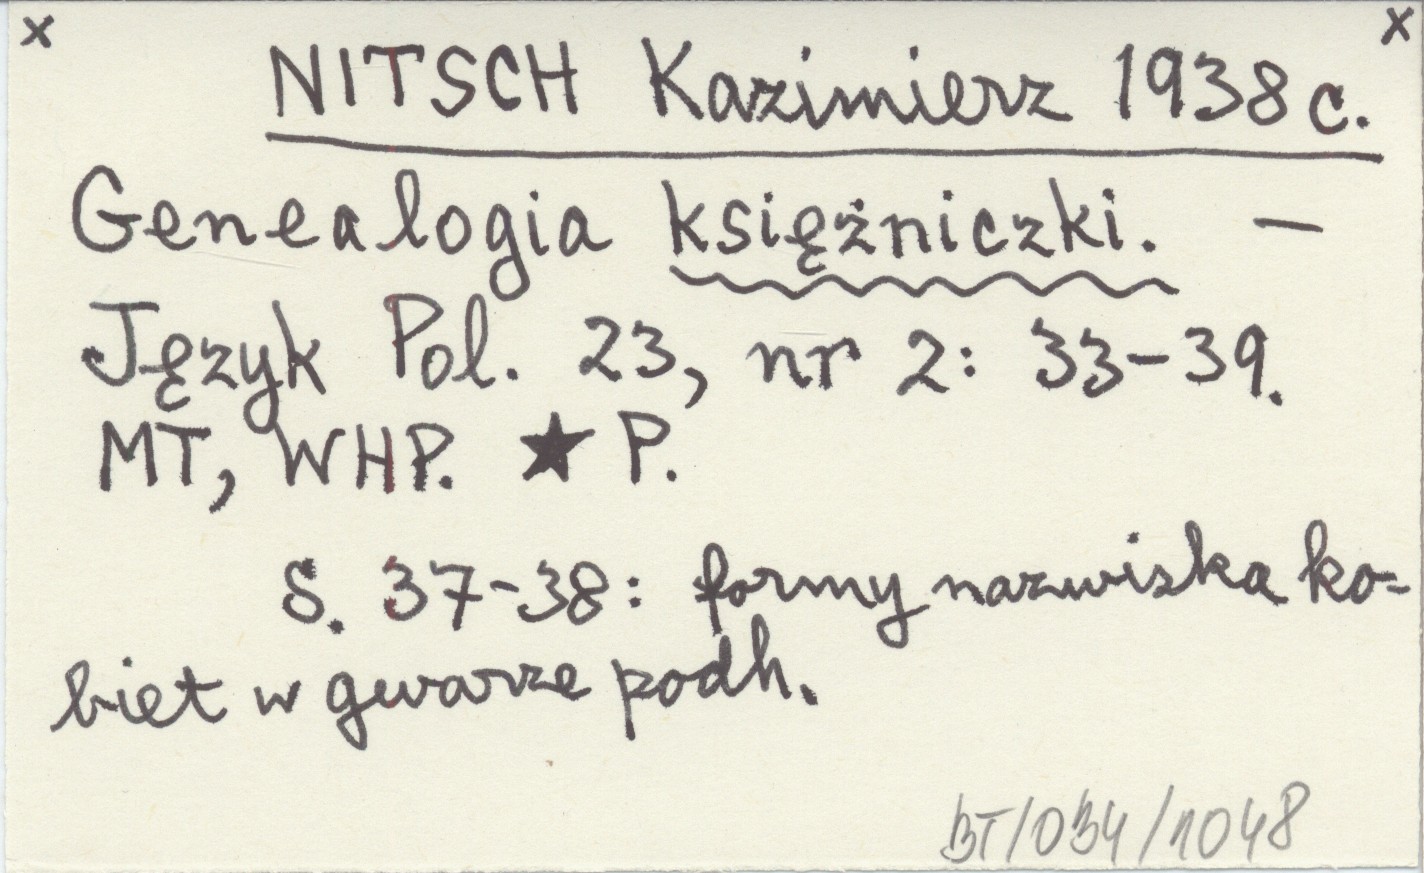 x x
NITSCH Kazimierz 1938 c.
Genealogia księżniczki. —
Język Pol. 23, nr 2: 33-39.
MT, WHP. ★ P.
S. 37-38: formy nazwiska ko-
biet w gwarze podh.
BT/034/1048